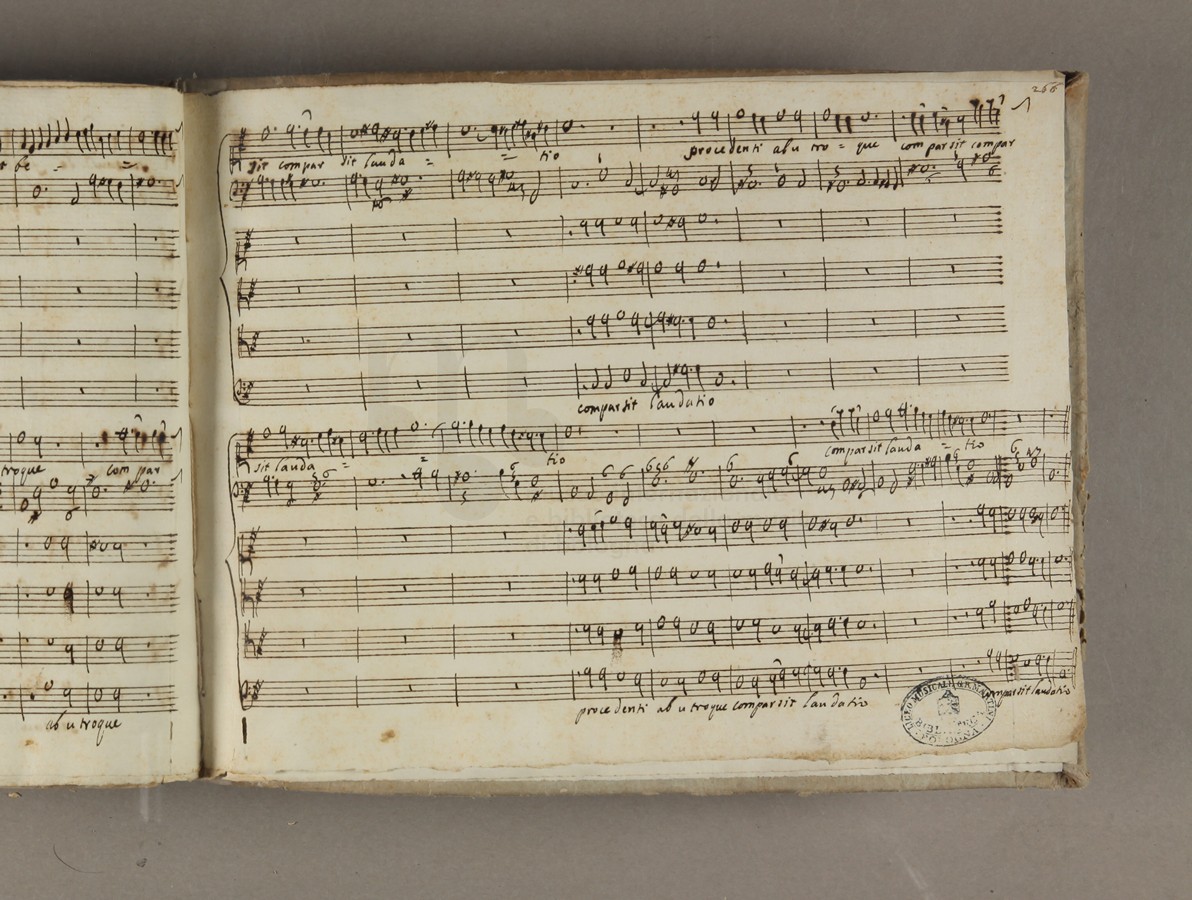 266
sit compar sit lauda = = tio procedenti ab utro = que comparsit compar
comparsit laudatio
troque com par
sit lauda = = tio comparsit lauda = tio
ab utroque
procedenti ab utroque comparsit laudatio comparsit laudatio
LICEO MUSICALE